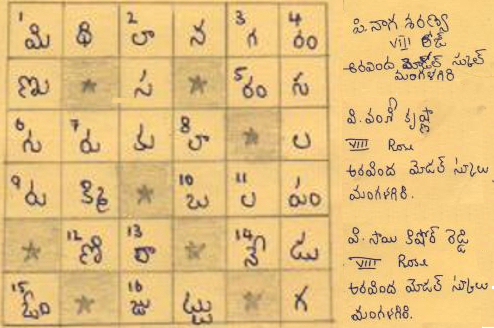 1 మి థి 2 లా న 3 గ 4 రం
ణు స 5 రం గ
6 గు 7 రు కు 8 లా ల
9 రు క్మి 10 జ 11 ల పం
12 ణి 13 రా 14 నే డు
15 ఓం 16 జు ట్టు గ
పి.నాగ శరణ్య
VIII రోజ్
అరవింద మోడల్ స్కూల్
మంగళగిరి
వి.వంశీ కృష్ణా
VIII Rose
అరవింద మోడల్ స్కూలు
మంగళగిరి.
వి. సాయి కిషోర్ రెడ్డి
VIII Rose
అరవింద మోడల్ స్కూలు,
మంగళగిరి.